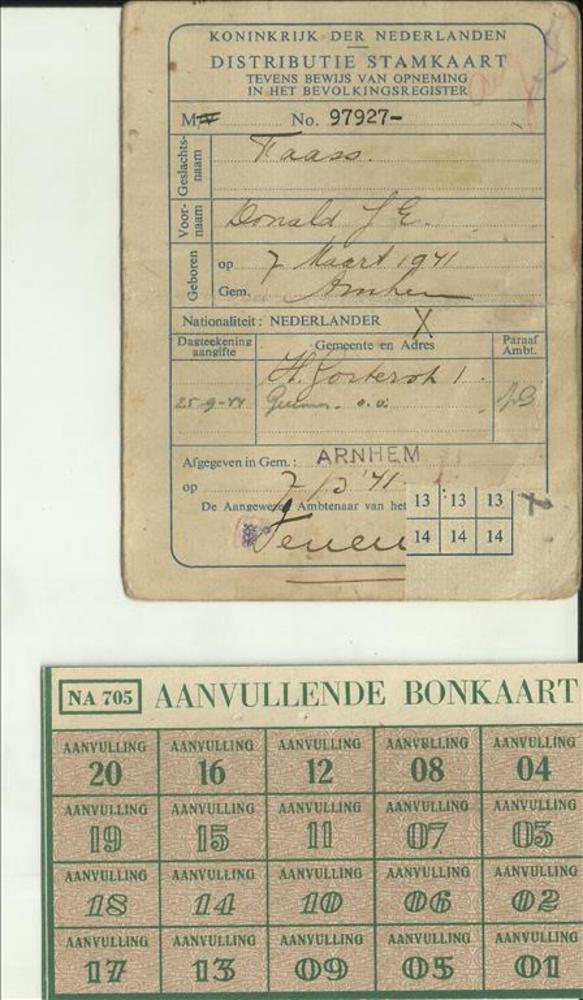 KONINKRIJK DER NEDERLANDEN
DISTRIBUTIE STAMKAART
TEVENS BEWIJS VAN OPNEMING
IN HET BEVOLKINGSREGISTER
M No. 97927-
Geslachts-
naam
Faass.
Voor-
naam
Donald J E.
Geboren
op 7 Maart 1941
Gem. Arnhem
Nationaliteit: NEDERLANDER X
Dagteekening
aangifte
Gemeente en Adres
Paraaf
Ambt.
H. 1.
25-9-44
Afgegeven in Gem.: ARNHEM
op 7/3 '41
De Aangewezen Ambtenaar van het
13 13 13
14 14 14
NA 705 AANVULLENDE BONKAART
AANVULLING AANVULLING AANVULLING AANVULLING AANVULLING
20 16 12 08 04
AANVULLING AANVULLING AANVULLING AANVULLING AANVULLING
19 15 11 07 03
AANVULLING AANVULLING AANVULLING AANVULLING AANVULLING
18 14 10 06 02
AANVULLING AANVULLING AANVULLING AANVULLING AANVULLING
17 13 09 05 01